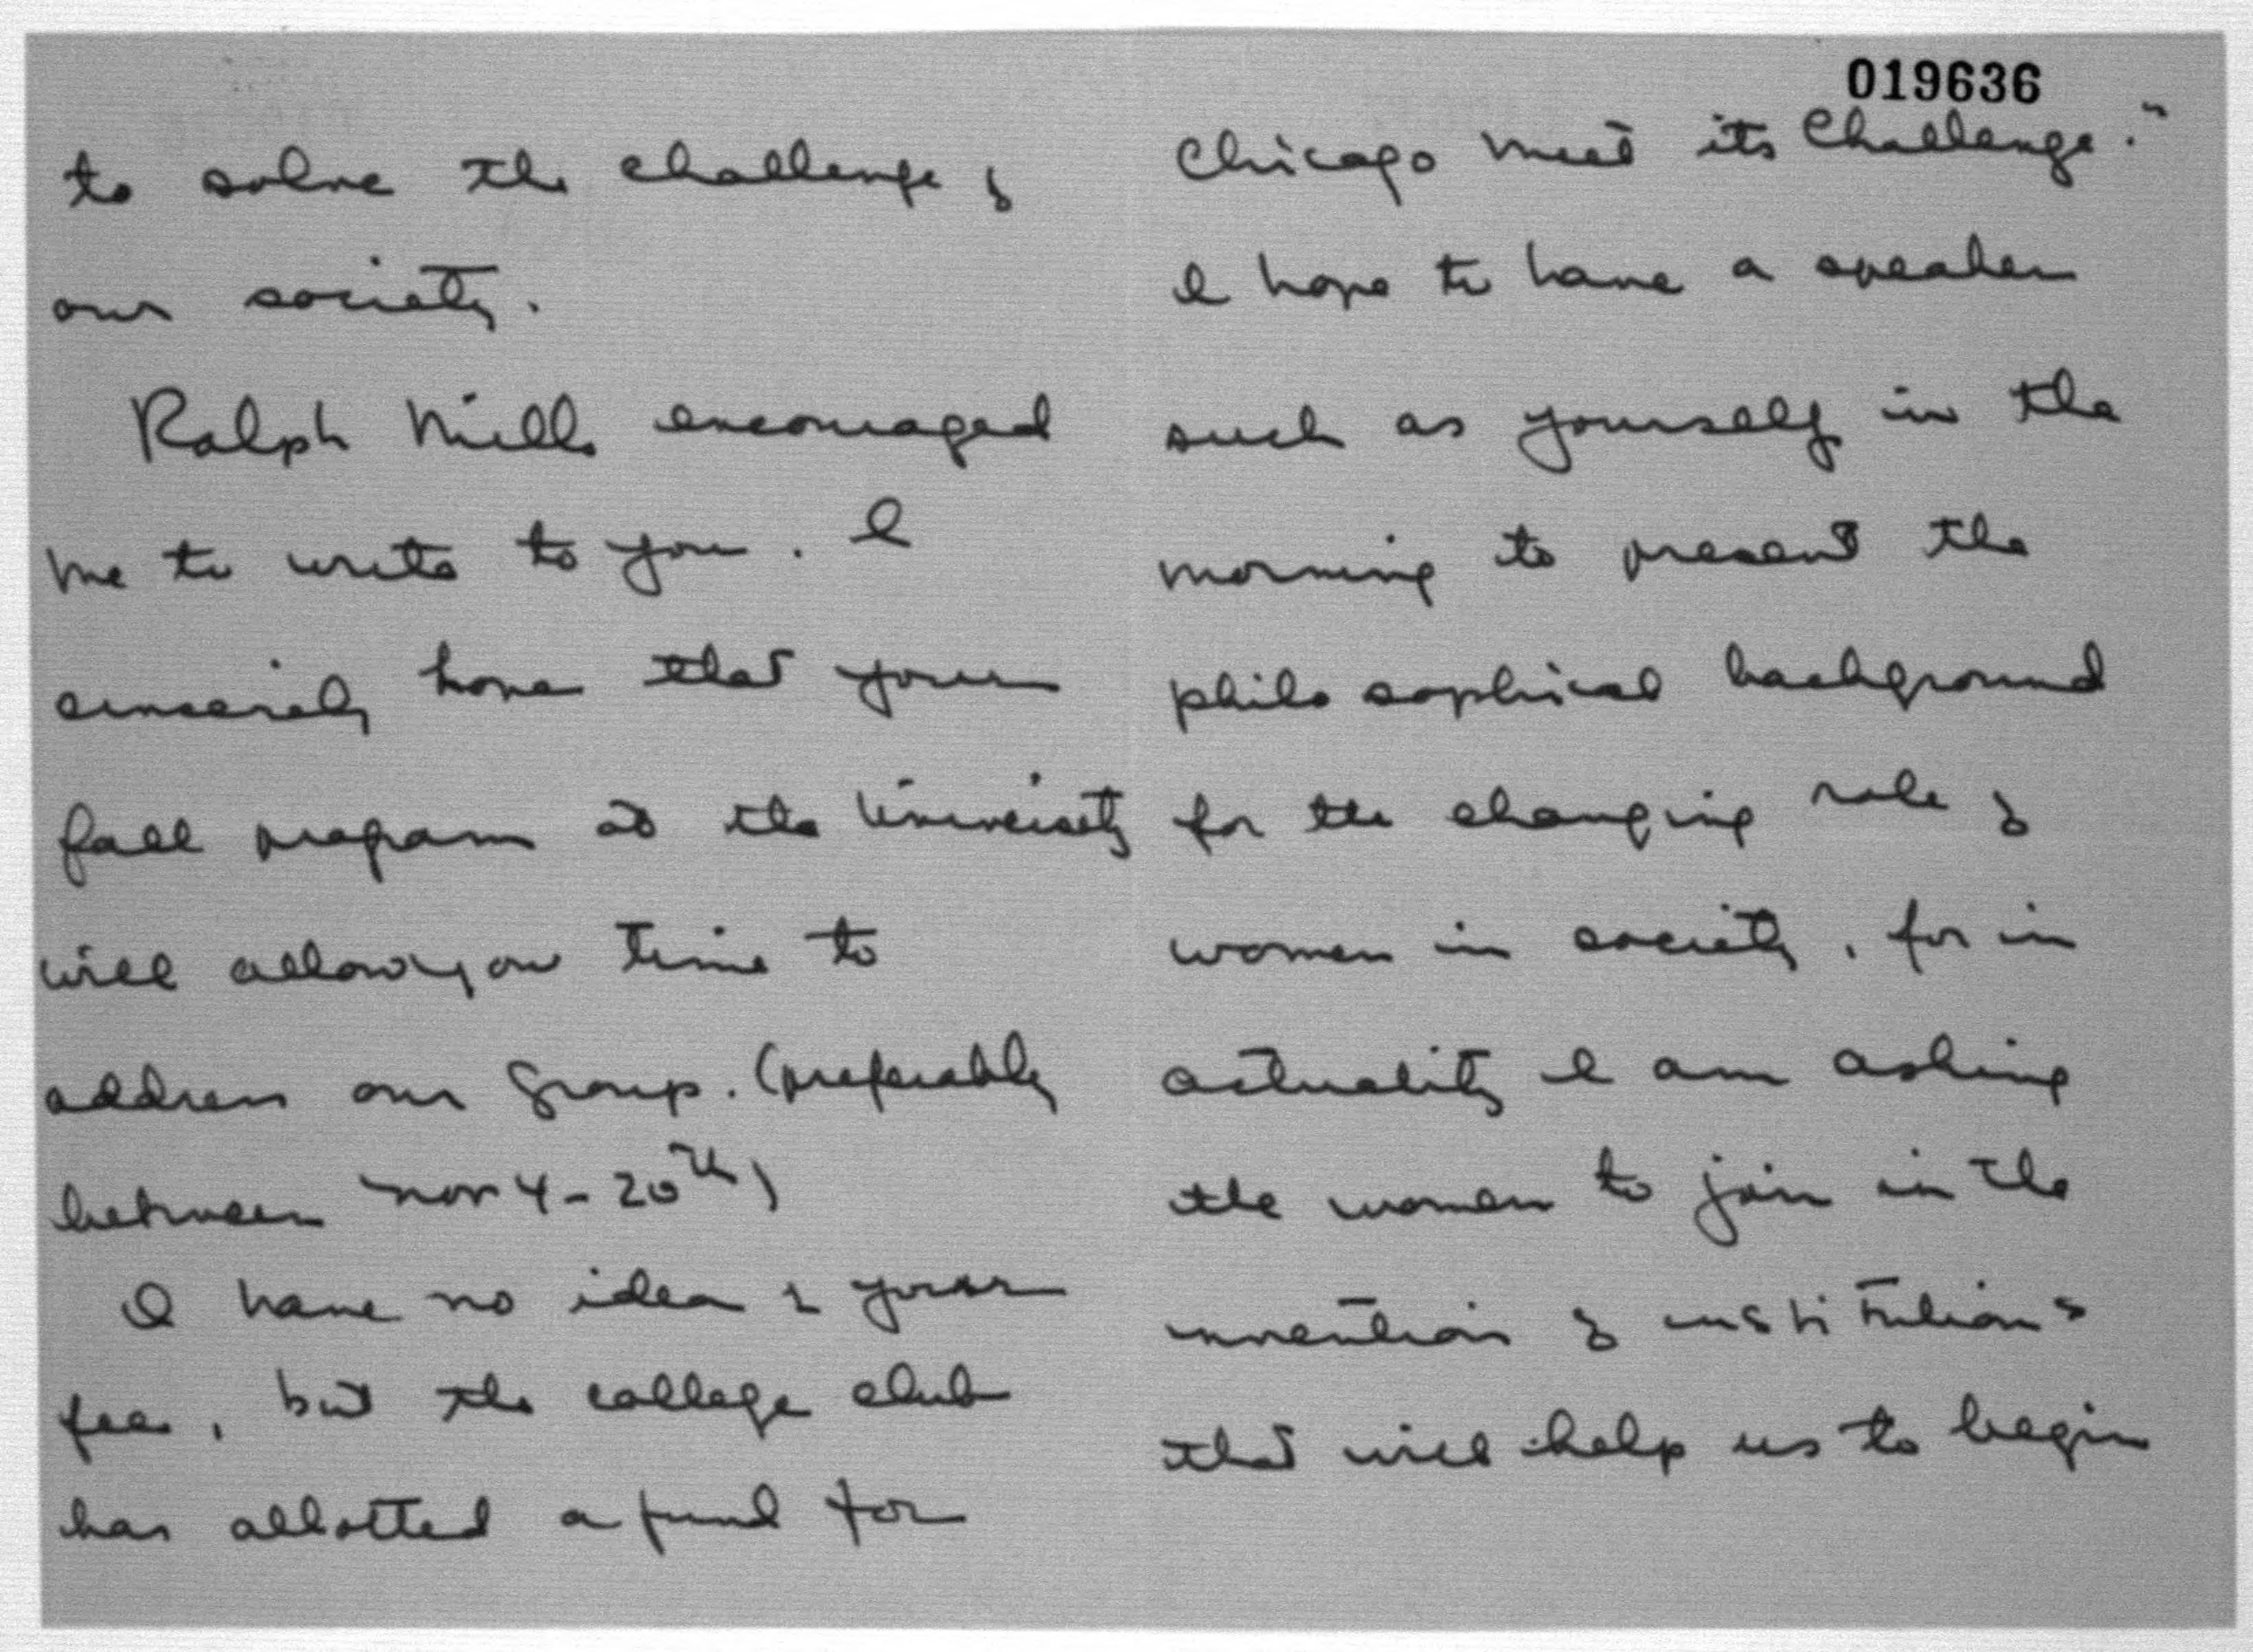 to solve the challenge of
our society.
Ralph Mills encouraged
me to write to you. I
sincerely hope that your
fall program at the University
will allow you time to
address our group. (preferably
between Nov 4-20th)
I have no idea of your
fee, but the college club
has allotted a fund for
019636
Chicago meet its Challenge."
I hope to have a speaker
such as yourself in the
morning to present the
philosophical background
for the changing role of
women in society, for in
actuality I am asking
the women to join in the
invention of institutions
that will help us to begin